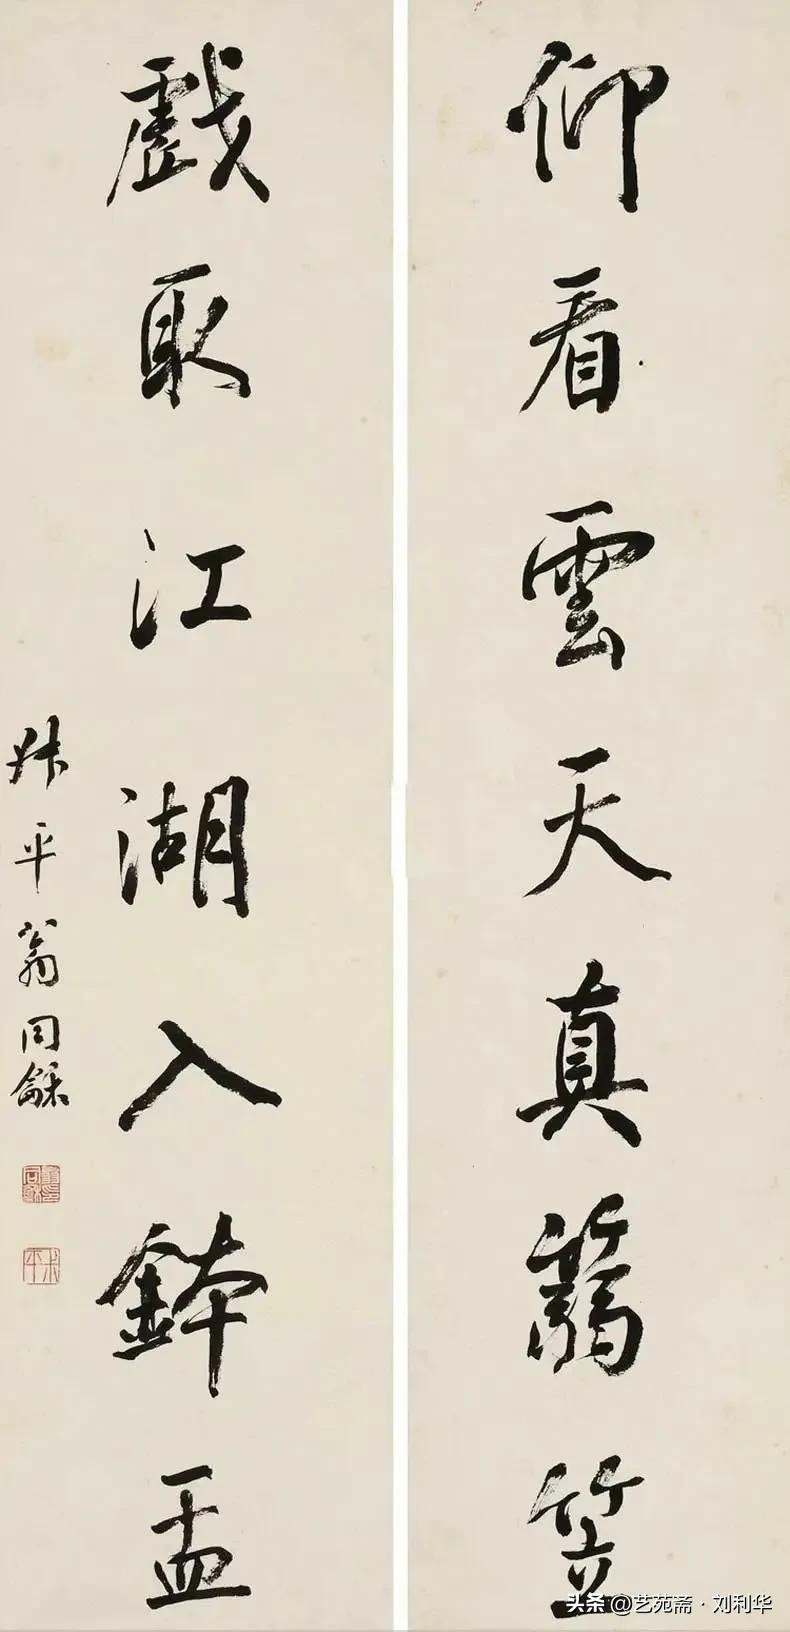 仰看雲天真篛笠
戲取江湖入鉢盂
叔平翁同龢
叔平
头条 @艺苑斋·刘利华